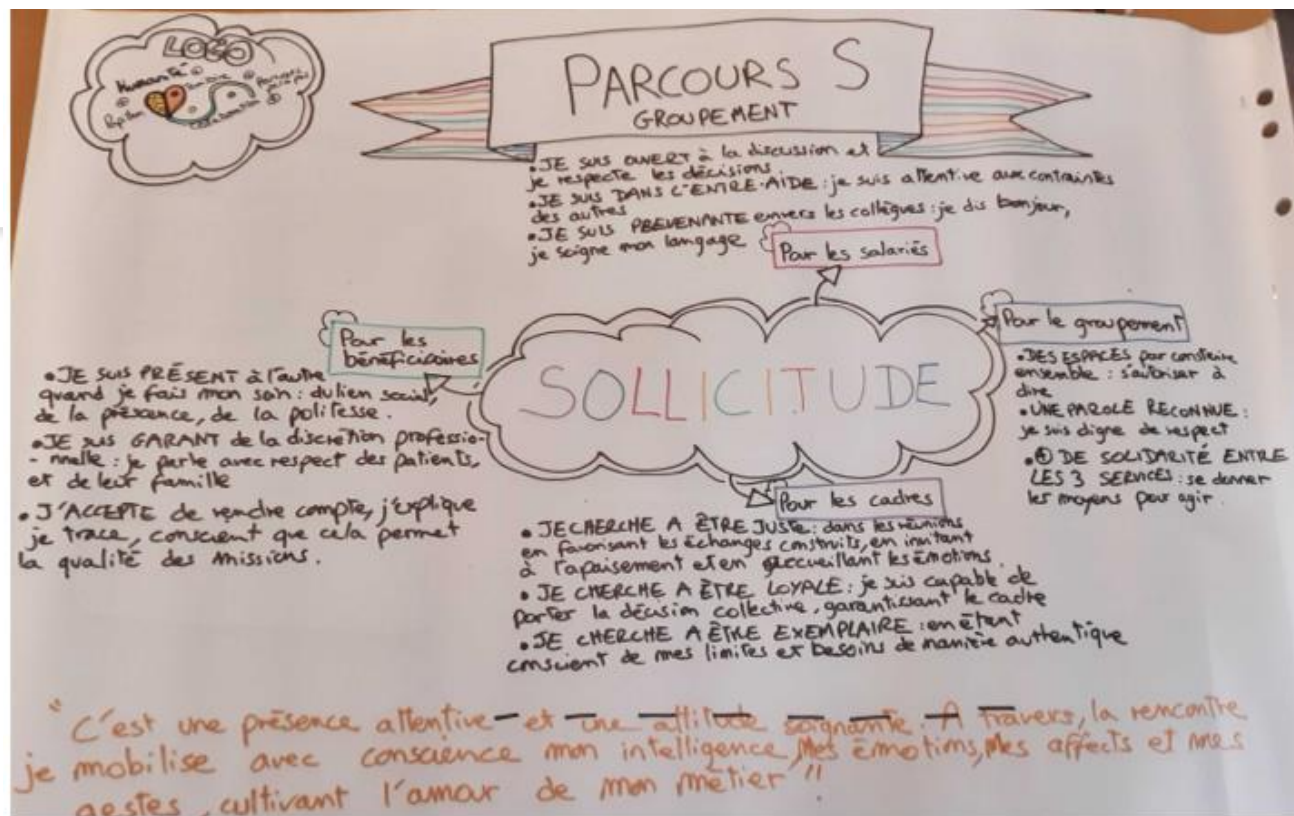 LOGO
Humanité
Papillon
Collaboration
PARCOURS S
GROUPEMENT
• JE SUIS OUVERT à la discussion et
je respecte les décisions
• JE SUIS DANS L'ENTRE-AIDE : je suis attentive aux contraintes
des autres
• JE SUIS PREVENANTE envers les collègues : je dis bonjour,
je soigne mon langage
Pour les salariés
Pour les
bénéficiaires
• JE SUIS PRÉSENT à l'autre
quand je fais mon soin : du lien social,
de la présence, de la politesse.
• JE SUIS GARANT de la discrétion professio-
-nnelle : je parle avec respect des patients,
et de leur famille
• J'ACCEPTE de rendre compte, j'explique
je trace, conscient que cela permet
la qualité des missions.
SOLLICITUDE
Pour le groupement
• DES ESPACES pour construire
ensemble : s'autoriser à
dire
• UNE PAROLE RECONNUE :
je suis digne de respect
• ⊕ DE SOLIDARITÉ ENTRE
LES 3 SERVICES : se donner
les moyens pour agir.
Pour les cadres
• JE CHERCHE A ÊTRE JUSTE : dans les réunions
en favorisant les échanges construits, en invitant
à l'apaisement et en accueillant les émotions.
• JE CHERCHE A ÊTRE LOYALE : je suis capable de
porter la décision collective, garantissant le cadre
• JE CHERCHE A ÊTRE EXEMPLAIRE : en étant
conscient de mes limites et besoins de manière authentique
"C'est une présence attentive - et une attitude soignante. A travers, la rencontre
je mobilise avec conscience mon intelligence, mes émotions, mes affects et mes
gestes, cultivant l'amour de mon métier"!